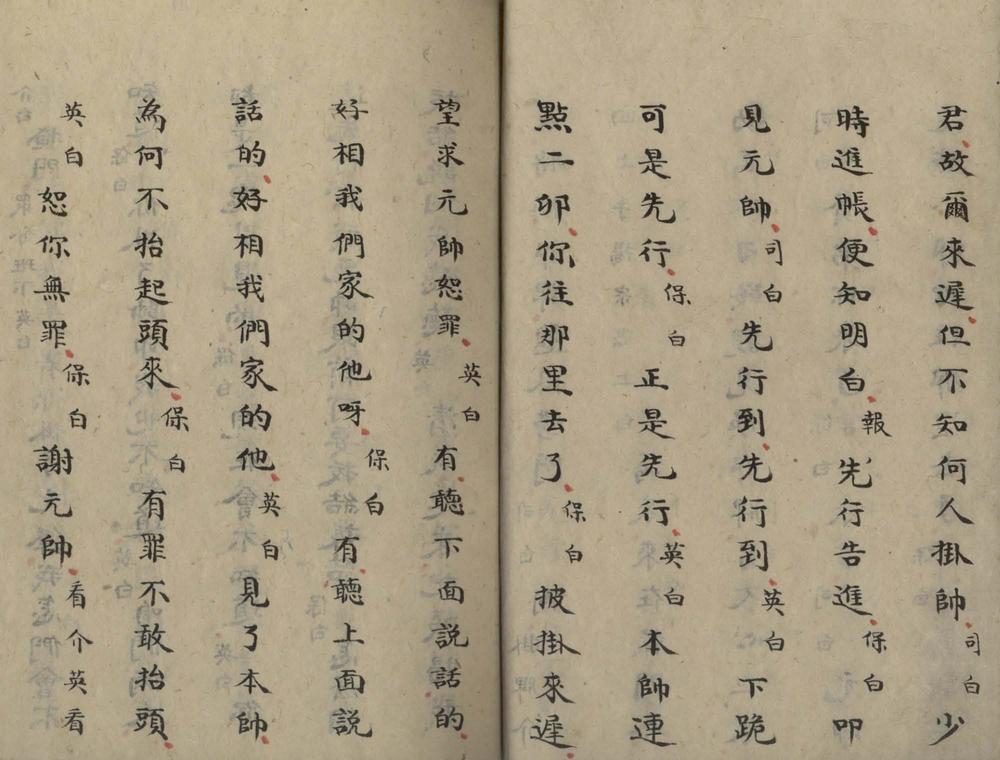 君故爾來遲但不知何人掛帥司白少
時進帳便知明白報先行告進保白叩
見元帥司白先行到先行到英白下跪
可是先行保白正是先行英白本帥連
點二卯你往那里去了保白披掛來遲
望求元帥恕罪英白有聽下面説話的
好相我們家的他呀保白有聽上面説
話的好相我們家的他英白見了本帥
為何不抬起頭來保白有罪不敢抬頭
英白恕你無罪保白謝元帥看介英看